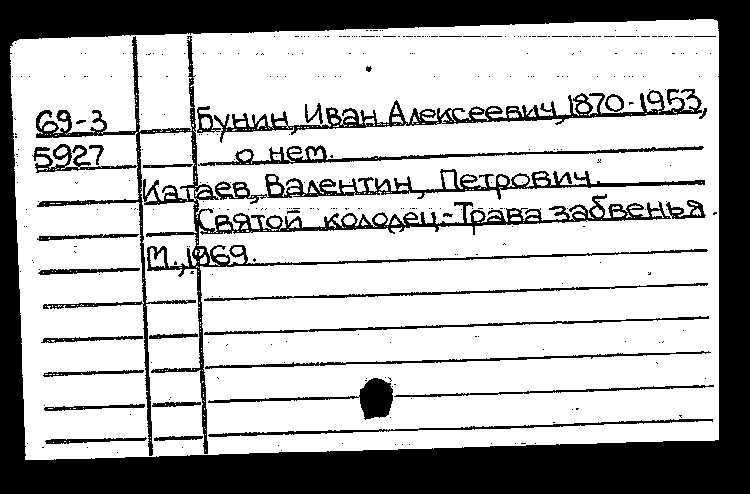 69-3 Бунин, Иван Алексеевич, 1870-1953,
5927 о нем.
Катаев, Валентин, Петрович.
Святой колодец.-Трава забвенья.
М., 1969.